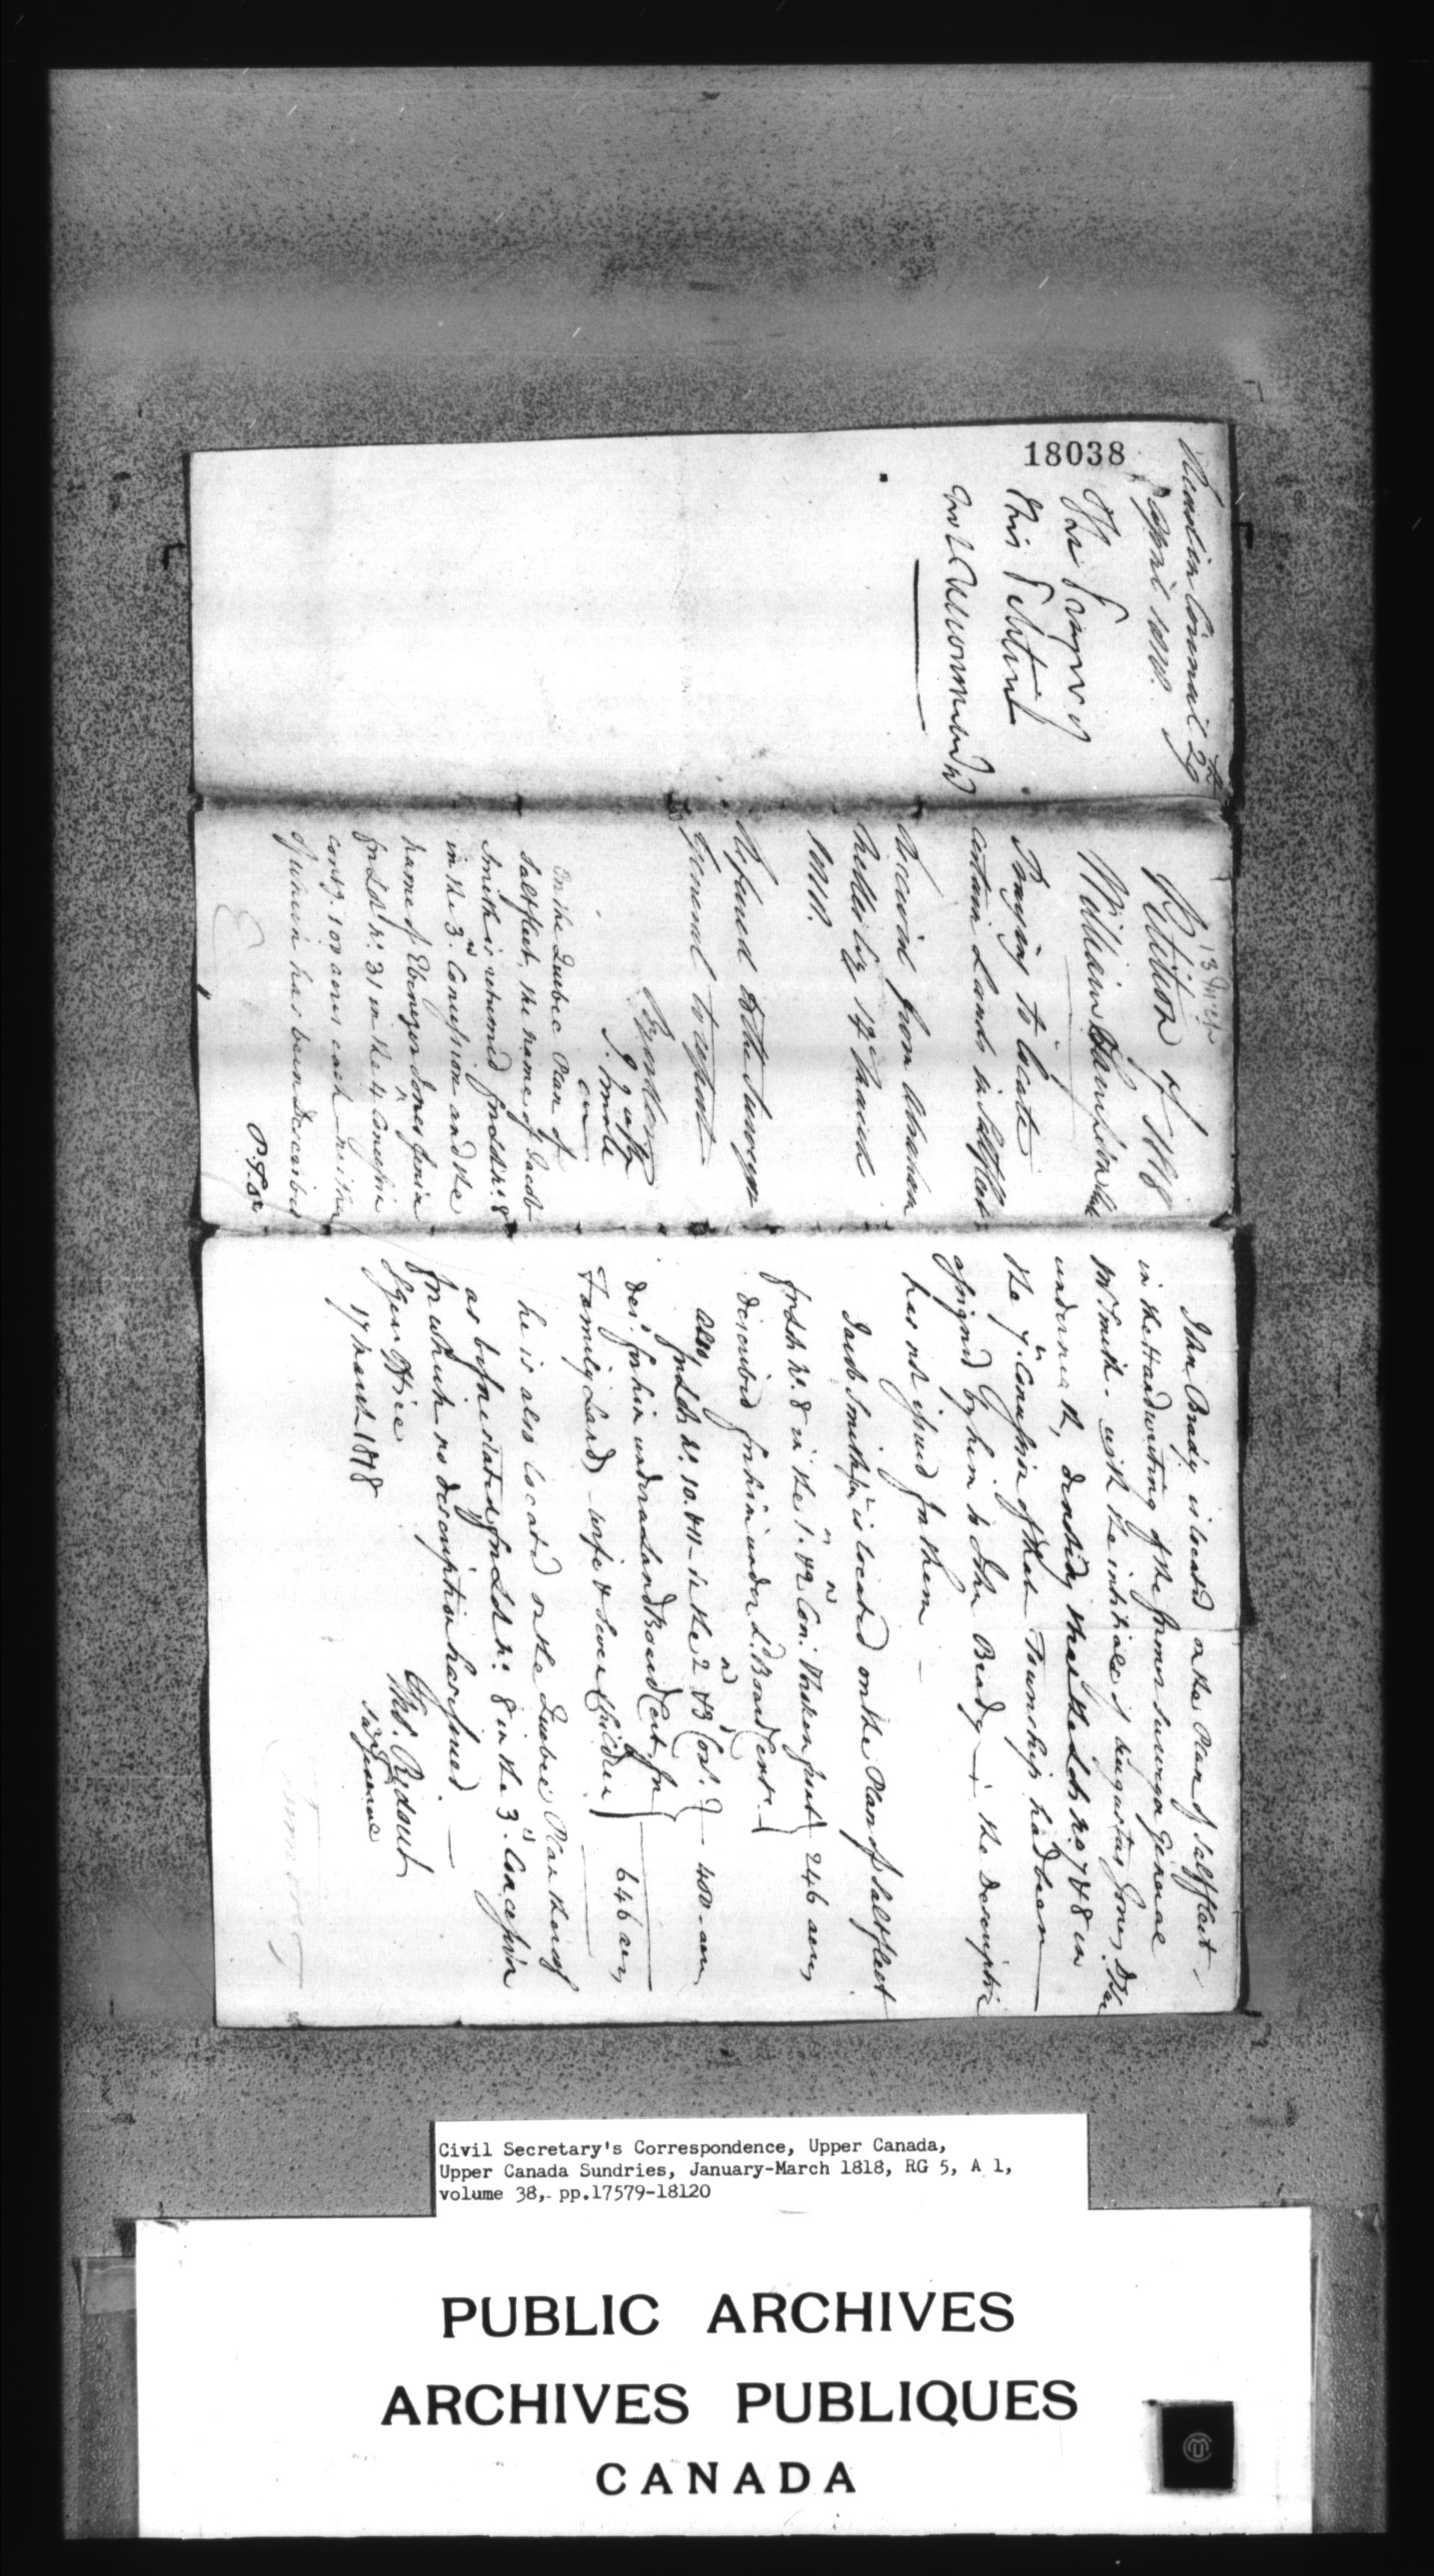 18038
Read in Council 29th
April 1818.
The Prayer of
this Petition
not recommended
13 March
Petition of 1818
William
Praying to locate
certain Lands in Saltfleet
Received from Abraham
by 14 March
1818.
Referred to the Surveyor
General to report
By order
On the Quebec Plan of
Saltfleet, the name of Jacob
Smith is returned for Lot No. 8
in the 3d Concession and the
name of Ebenezer Jones Junior
for Lot No. 31 in the 4 Concession
contg. 100 acres each neither
of which has been described
John Brady is located on the Plan of Saltfleet -
in the Handwriting of the former Surveyor General
Mr Smith - with the initials of Augustus Jones
underneath, denoting that the Lots No. 7 & 8 in
the 7th Concession of that Township had been
assigned by him to John Brady - the Description
has not issued for them -
Jacob Smith is located on the Plan of Saltfleet
for Lots No. 8 in the 1st & 2d Con: Broken front } 246 acres
described for him under Ld Board Certe. }
also for Lots No. 10 & 11 - in the 2d & 3d Cons. } 400 acres
des: for him under a Land Board Cert. for }
Family Lands - wife & seven Children } 646 acres
he is also located on the Quebec Plan thereof
as before stated for Lot No. 8 in the 3d Concession
for which no description has issued. -
S. Gen. Office
17 March 1818
Thos. Ridout
Sur. General
Civil Secretary's Correspondence, Upper Canada,
Upper Canada Sundries, January-March 1818, RG 5, A 1,
volume 38, pp.17579-18120
PUBLIC ARCHIVES
ARCHIVES PUBLIQUES
CANADA